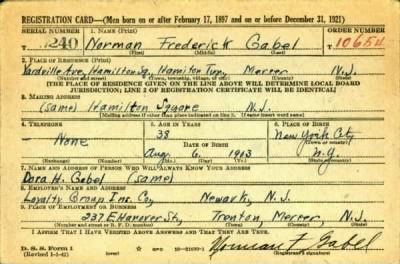 REGISTRATION CARD—(Men born on or after February 17, 1897 and on or before December 31, 1921)
SERIAL NUMBER 1. NAME (Print) ORDER NUMBER
240 Norman Frederick Gabel 10654
(First) (Middle) (Last)
2. PLACE OF RESIDENCE (Print)
Yardville Ave, Hamilton Sq, Hamilton Twn, Mercer N.J.
(Number and street) (Town, township, village, or city) (County) (State)
[THE PLACE OF RESIDENCE GIVEN ON THE LINE ABOVE WILL DETERMINE LOCAL BOARD
JURISDICTION; LINE 2 OF REGISTRATION CERTIFICATE WILL BE IDENTICAL]
3. MAILING ADDRESS
(same) Hamilton Square N.J.
[Mailing address if other than place indicated on line 2. If same insert word same]
4. TELEPHONE 5. AGE IN YEARS 6. PLACE OF BIRTH
None 38 New York City
DATE OF BIRTH (Town or county)
Aug. 6, 1903 N.Y.
(Exchange) (Number) (Mo.) (Day) (Yr.) (State or country)
7. NAME AND ADDRESS OF PERSON WHO WILL ALWAYS KNOW YOUR ADDRESS
Dora H. Gabel (same)
8. EMPLOYER'S NAME AND ADDRESS
Loyalty Group Ins. Co, Newark, N.J.
9. PLACE OF EMPLOYMENT OR BUSINESS
237 E Hanover St, Trenton, Mercer, N.J.
(Number and street or R. F. D. number) (Town) (County) (State)
I AFFIRM THAT I HAVE VERIFIED ABOVE ANSWERS AND THAT THEY ARE TRUE.
D. S. S. Form 1
(Revised 1-1-42) (over) GPO Norman F Gabel
(Registrant's signature)